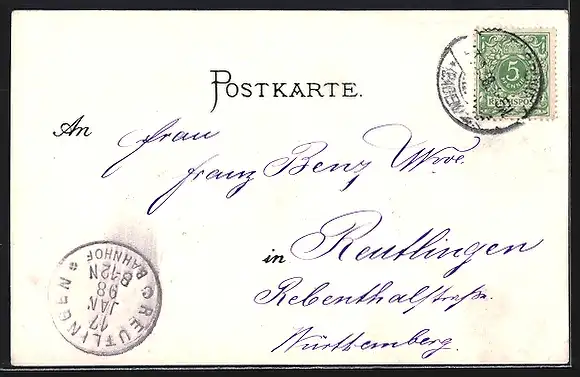 POSTKARTE.
5
REICHSPOST
An Frau
Franz Benz Wwe.
in Reutlingen
Rebenthalstraße.
Württemberg.
REUTLINGEN
BAHNHOF
8-12N
17
JAN
98